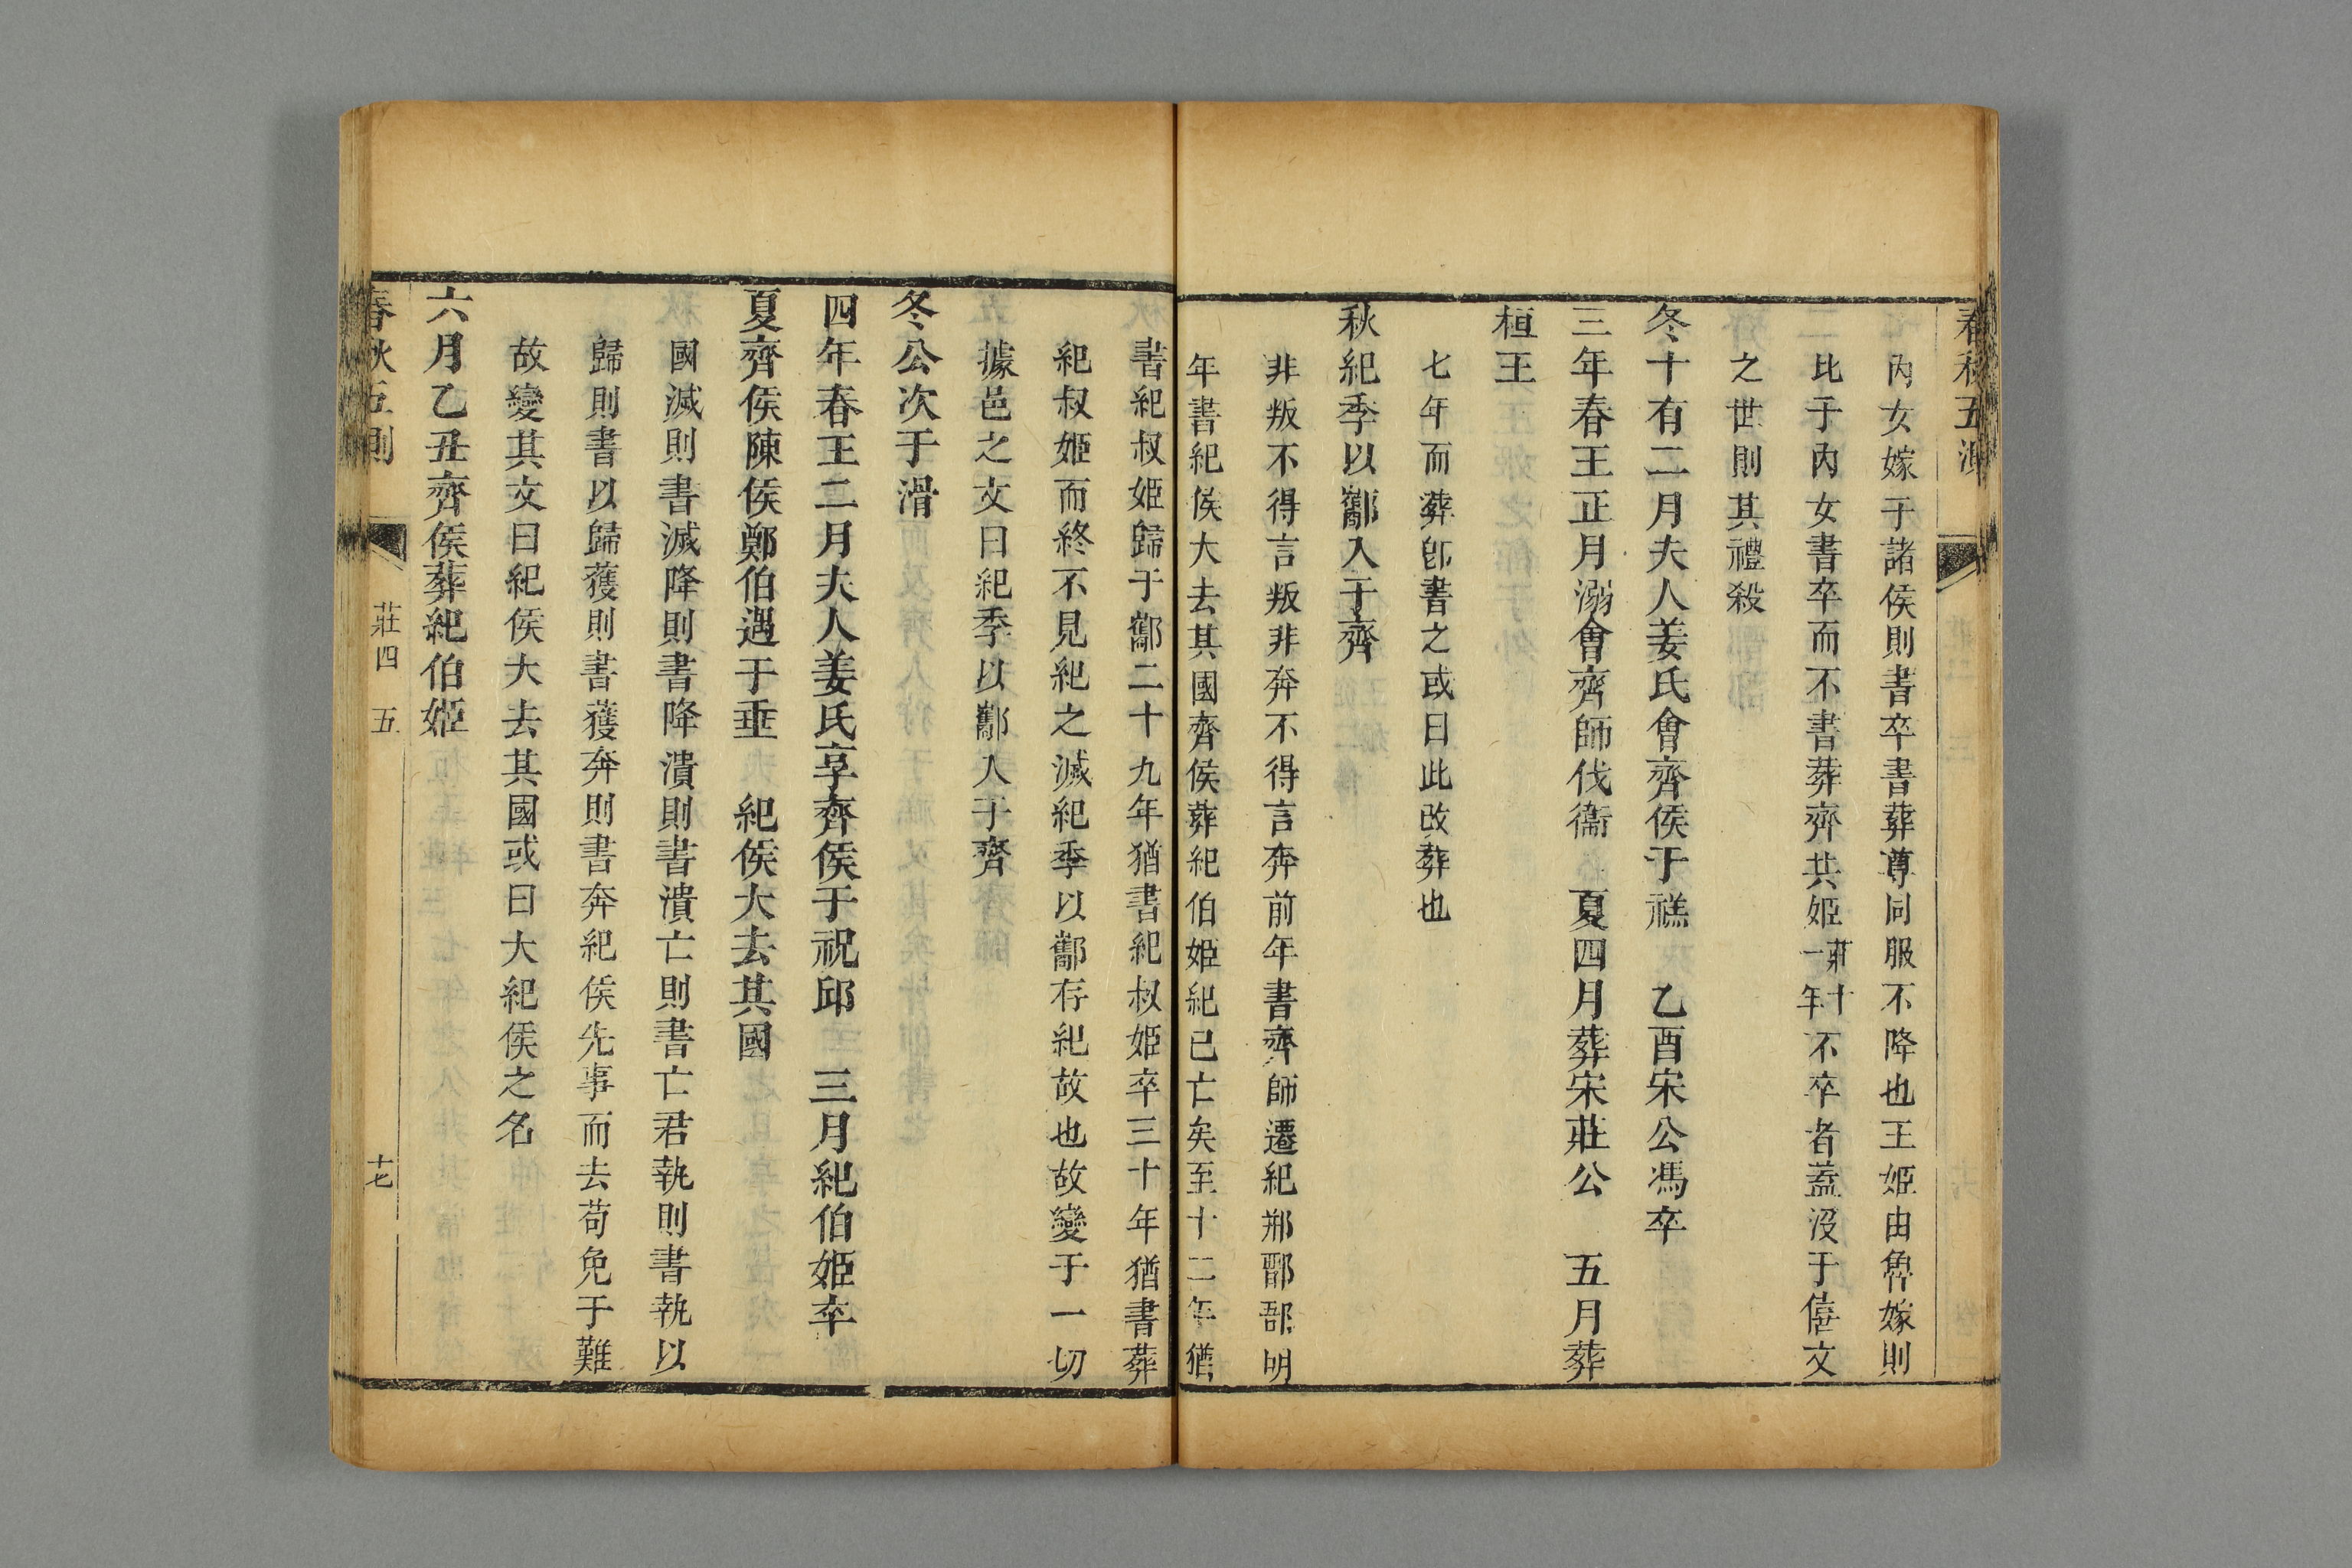 春秋五測
內女嫁于諸侯則書卒書葬尊同服不降也王姬由魯嫁則
比于內女書卒而不書葬齊共姬莊十一年不卒者蓋沒于僖文
之世則其禮殺
冬十有二月夫人姜氏會齊侯于禚　乙酉宋公馮卒
三年春王正月溺會齊師伐衞　夏四月葬宋莊公　五月葬
桓王
七年而葬卽書之或曰此改葬也
秋紀季以酅入于齊
非叛不得言叛非奔不得言奔前年書齊師遷紀郱鄑郚明
年書紀侯大去其國齊侯葬紀伯姬紀已亡矣至十二年猶
書紀叔姬歸于酅二十九年猶書紀叔姬卒三十年猶書葬
紀叔姬而終不見紀之滅紀季以酅存紀故也故變于一切
據邑之文曰紀季以酅入于齊
冬公次于滑
四年春王二月夫人姜氏享齊侯于祝邱　三月紀伯姬卒
夏齊侯陳侯鄭伯遇于垂　紀侯大去其國
國滅則書滅降則書降潰則書潰亡則書亡君執則書執以
歸則書以歸獲則書獲奔則書奔紀侯先事而去苟免于難
故變其文曰紀侯大去其國或曰大紀侯之名
六月乙丑齊侯葬紀伯姬
春秋五測　莊四　五　十七